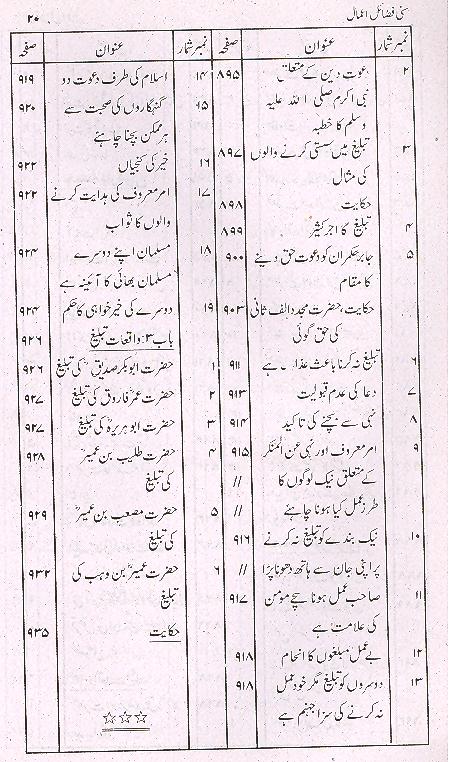 سنی فضائل اعمال ۲۰
نمبر شمار عنوان صفحہ
۲ دعوت دین کے متعلق ۸۹۵
نبی اکرم صلی اللہ علیہ
وسلم کا خطبہ
۳ تبلیغ میں سستی کرنے والوں ۸۹۷
کی مثال
حکایت ۸۹۸
۴ تبلیغ کا اجر کثیر ۸۹۹
۵ جابر حکمران کو دعوت حق دینے ۹۰۰
کا مقام
حکایت، حضرت مجدد الف ثانی ۹۰۳
کی حق گوئی
۶ تبلیغ نہ کرنا باعث عذاب ہے ۹۱۱
۷ دعا کی عدم قبولیت ۹۱۳
۸ نہی سے بچنے کی تاکید ۹۱۴
۹ امر معروف اور نہی عن المنکر ۹۱۵
کے متعلق نیک لوگوں کا //
طرز عمل کیا ہونا چاہئے //
۱۰ نیک بندے کو تبلیغ نہ کرنے ۹۱۶
پر اپنی جان سے ہاتھ دھونا پڑا //
۱۱ صاحب عمل ہونا سچے مومن ۹۱۷
کی علامت ہے
۱۲ بے عمل مبلغوں کا انجام ۹۱۸
۱۳ دوسروں کو تبلیغ مگر خود عمل ۹۱۸
نہ کرنے کی سزا جہنم ہے
نمبر شمار عنوان صفحہ
۱۴ اسلام کی طرف دعوت دو ۹۱۹
۱۵ گنہگاروں کی صحبت سے ۹۲۰
ہر ممکن بچنا چاہئے
۱۶ خیر کی کنجیاں ۹۲۲
۱۷ امر معروف کی ہدایت کرنے ۹۲۲
والوں کا ثواب
۱۸ مسلمان اپنے دوسرے ۹۲۴
مسلمان بھائی کا آئینہ ہے
۱۹ دوسرے کی خیر خواہی کا حکم ۹۲۴
باب ۳: واقعات تبلیغ ۹۲۶
۱ حضرت ابو بکر صدیقؓ کی تبلیغ ۹۲۶
۲ حضرت عمر فاروق کی تبلیغ ۹۲۷
۳ حضرت ابو ہریرہؓ کی تبلیغ ۹۲۷
۴ حضرت طلیب بن عمیرؓ ۹۲۸
کی تبلیغ
۵ حضرت مصعب بن عمیرؓ ۹۲۹
کی تبلیغ
۶ حضرت عمیرؓ بن وہب کی ۹۳۲
تبلیغ
حکایت ۹۳۵
☆☆☆